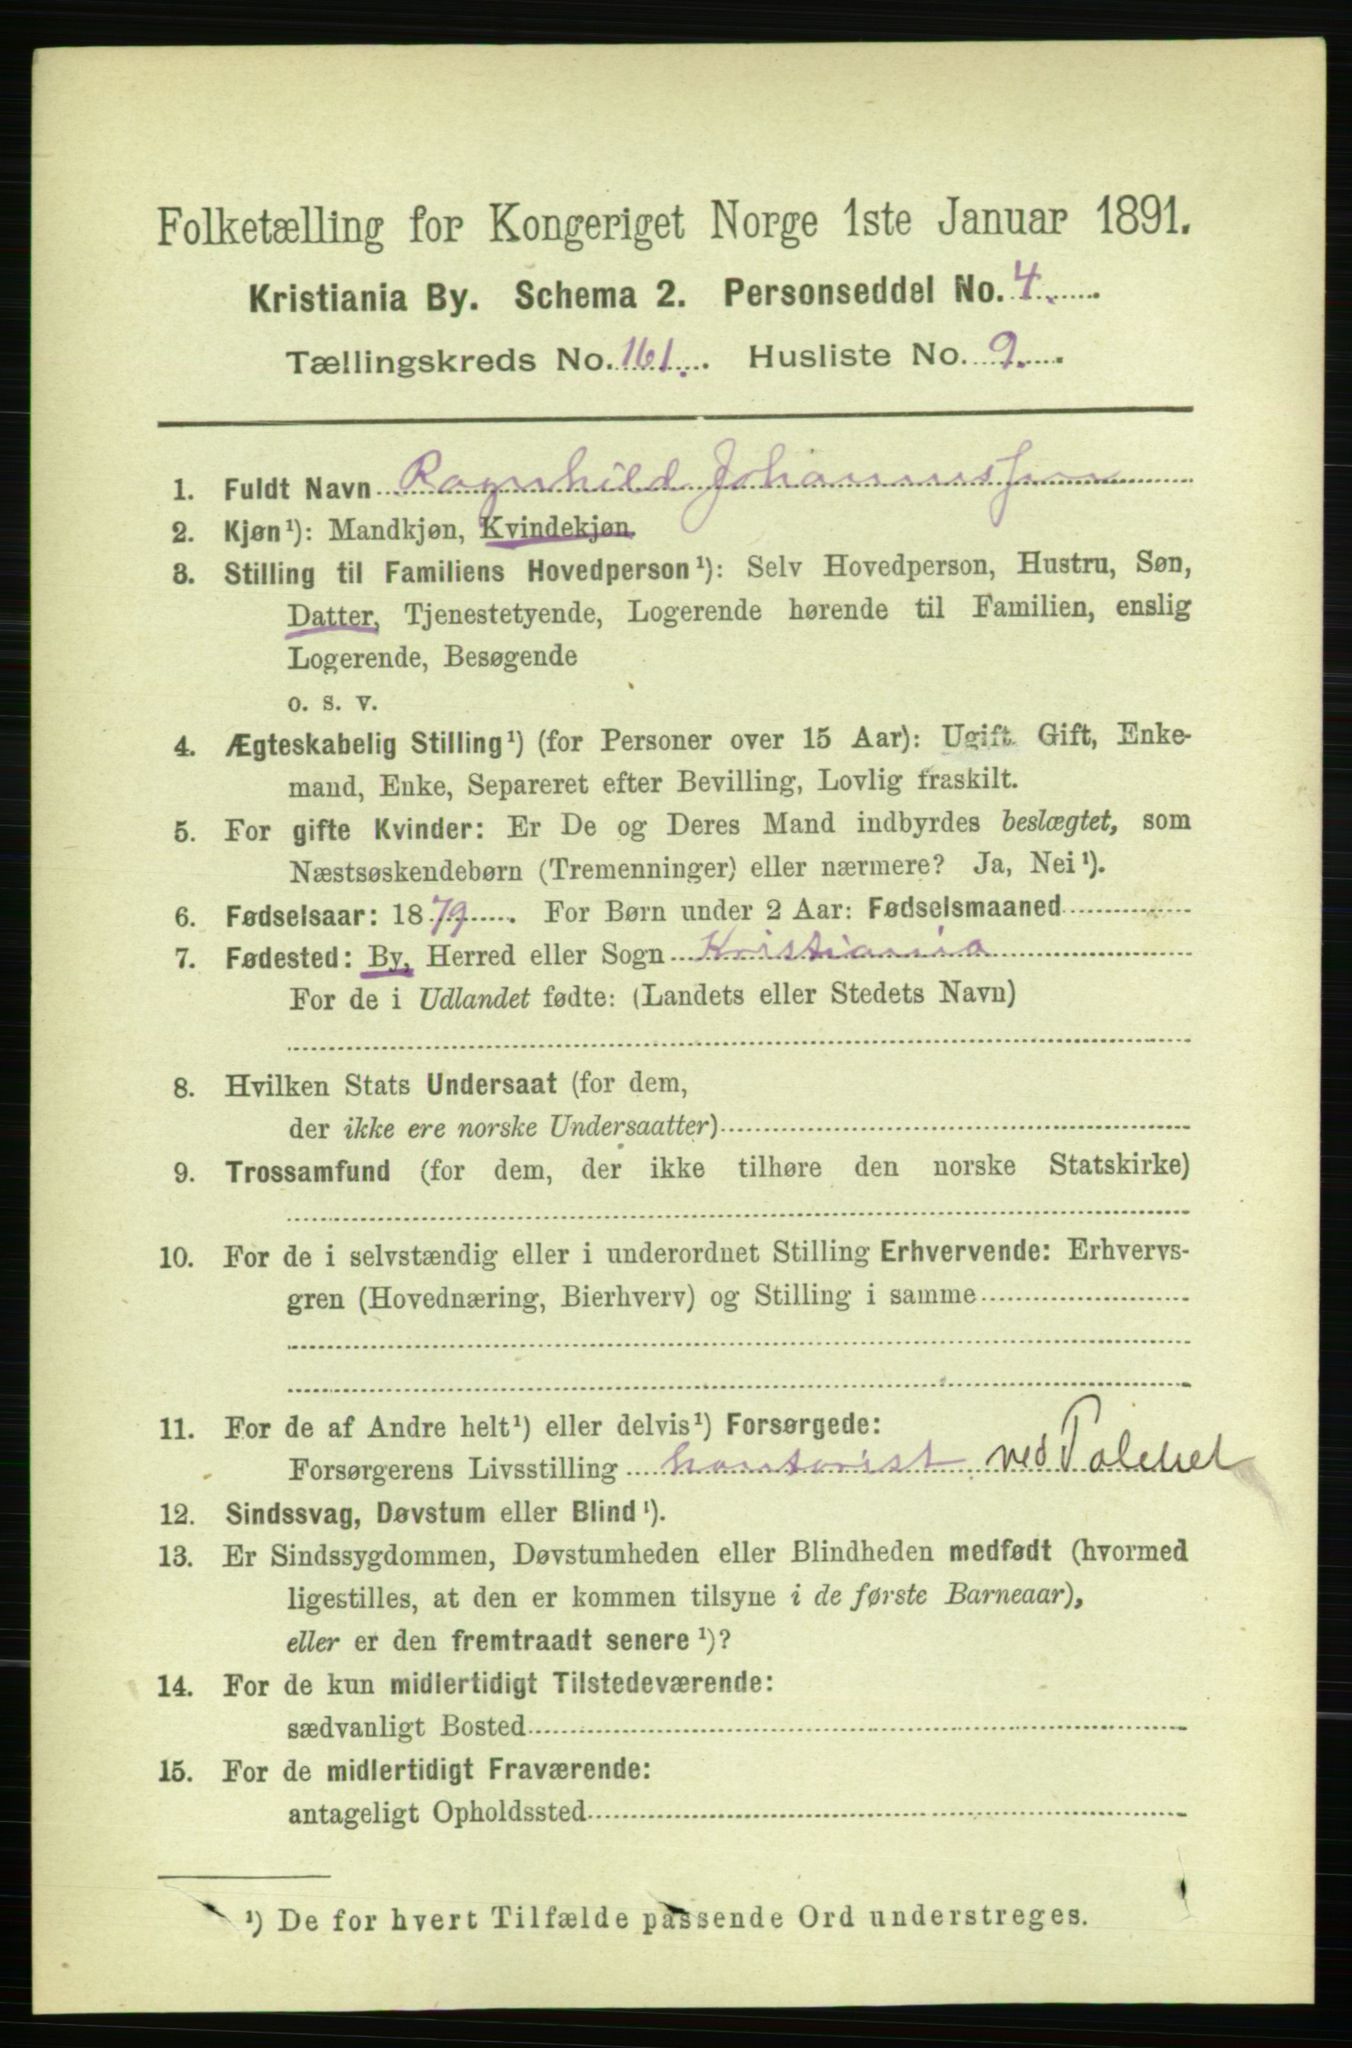 Folketælling for Kongeriget Norge 1ste Januar 1891.
Kristiania By. Schema 2. Personseddel No. 4.
Tællingskreds No. 161. Husliste No. 9.
1. Fuldt Navn Ragnhild Johannessen
2. Kjøn¹): Mandkjøn, Kvindekjøn.
3. Stilling til Familiens Hovedperson¹): Selv Hovedperson, Hustru, Søn,
Datter, Tjenestetyende, Logerende hørende til Familien, enslig
Logerende, Besøgende
o. s. v.
4. Ægteskabelig Stilling¹) (for Personer over 15 Aar): Ugift. Gift, Enke-
mand, Enke, Separeret efter Bevilling, Lovlig fraskilt.
5. For gifte Kvinder: Er De og Deres Mand indbyrdes beslægtet, som
Næstsøskendebørn (Tremenninger) eller nærmere? Ja, Nei¹).
6. Fødselsaar: 1879. For Børn under 2 Aar: Fødselsmaaned
7. Fødested: By, Herred eller Sogn Kristiania
For de i Udlandet fødte: (Landets eller Stedets Navn)
8. Hvilken Stats Undersaat (for dem,
der ikke ere norske Undersaatter)
9. Trossamfund (for dem, der ikke tilhøre den norske Statskirke)
10. For de i selvstændig eller i underordnet Stilling Erhvervende: Erhvervs-
gren (Hovednæring, Bierhverv) og Stilling i samme
11. For de af Andre helt¹) eller delvis¹) Forsørgede:
Forsørgerens Livsstilling kontorist ved
12. Sindssvag, Døvstum eller Blind¹).
13. Er Sindssygdommen, Døvstumheden eller Blindheden medfødt (hvormed
ligestilles, at den er kommen tilsyne i de første Barneaar),
eller er den fremtraadt senere¹)?
14. For de kun midlertidigt Tilstedeværende:
sædvanligt Bosted
15. For de midlertidigt Fraværende:
antageligt Opholdssted
¹) De for hvert Tilfælde passende Ord understreges.